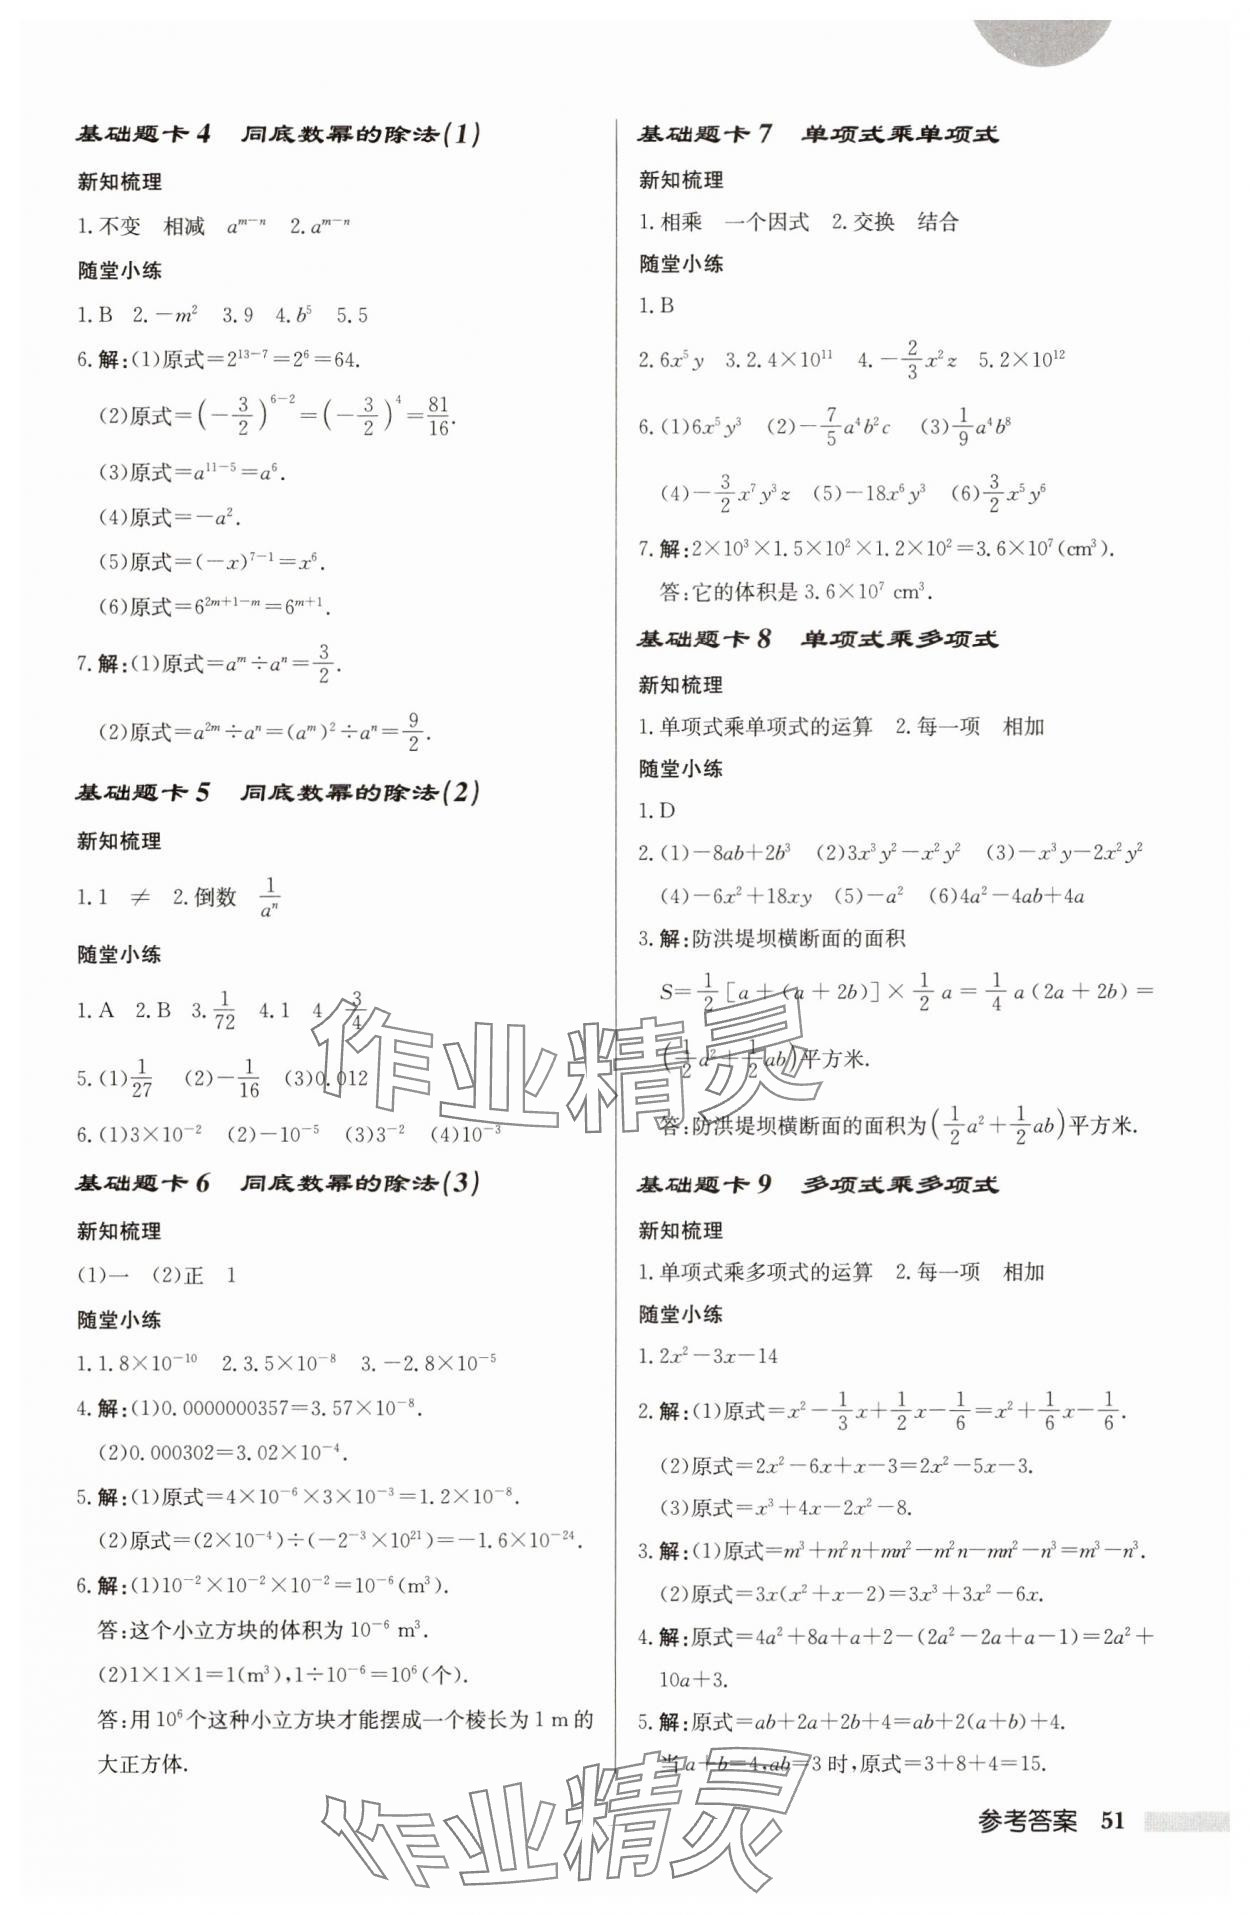 基础题卡4 同底数幂的除法(1)
新知梳理
1.不变 相减 a^{m-n} 2.a^{m-n}
随堂小练
1.B 2.-m² 3.9 4.b⁵ 5.5
6.解:(1)原式=2^{13-7}=2⁶=64.
(2)原式=(-3/2)^{6-2}=(-3/2)⁴=81/16.
(3)原式=a^{11-5}=a⁶.
(4)原式=-a².
(5)原式=(-x)^{7-1}=x⁶.
(6)原式=6^{2m+1-m}=6^{m+1}.
7.解:(1)原式=a^m÷a^n=3/2.
(2)原式=a^{2m}÷a^n=(a^m)²÷a^n=9/2.
基础题卡5 同底数幂的除法(2)
新知梳理
1.1 ≠ 2.倒数 1/a^n
随堂小练
1.A 2.B 3.1/72 4.1 4 3/4
5.(1)1/27 (2)-1/16 (3)0.012
6.(1)3×10^{-2} (2)-10^{-5} (3)3^{-2} (4)10^{-3}
基础题卡6 同底数幂的除法(3)
新知梳理
(1)一 (2)正 1
随堂小练
1.1.8×10^{-10} 2.3.5×10^{-8} 3.-2.8×10^{-5}
4.解:(1)0.0000000357=3.57×10^{-8}.
(2)0.000302=3.02×10^{-4}.
5.解:(1)原式=4×10^{-6}×3×10^{-3}=1.2×10^{-8}.
(2)原式=(2×10^{-4})÷(-2^{-3}×10^{21})=-1.6×10^{-24}.
6.解:(1)10^{-2}×10^{-2}×10^{-2}=10^{-6}(m³).
答:这个小立方块的体积为10^{-6} m³.
(2)1×1×1=1(m³),1÷10^{-6}=10⁶(个).
答:用10⁶个这种小立方块才能摆成一个棱长为1 m的
大正方体.
基础题卡7 单项式乘单项式
新知梳理
1.相乘 一个因式 2.交换 结合
随堂小练
1.B
2.6x⁵y 3.2.4×10^{11} 4.-2/3x²z 5.2×10^{12}
6.(1)6x⁵y³ (2)-7/5a⁴b²c (3)1/9a⁴b⁸
(4)-3/2x⁷y³z (5)-18x⁶y³ (6)3/2x⁵y⁶
7.解:2×10³×1.5×10²×1.2×10²=3.6×10⁷(cm³).
答:它的体积是3.6×10⁷ cm³.
基础题卡8 单项式乘多项式
新知梳理
1.单项式乘单项式的运算 2.每一项 相加
随堂小练
1.D
2.(1)-8ab+2b³ (2)3x³y²-x²y² (3)-x³y-2x²y²
(4)-6x²+18xy (5)-a² (6)4a²-4ab+4a
3.解:防洪堤坝横断面的面积
S=1/2[a+(a+2b)]×1/2a=1/4a(2a+2b)=
(1/2a²+1/2ab)平方米.
答:防洪堤坝横断面的面积为(1/2a²+1/2ab)平方米.
基础题卡9 多项式乘多项式
新知梳理
1.单项式乘多项式的运算 2.每一项 相加
随堂小练
1.2x²-3x-14
2.解:(1)原式=x²-1/3x+1/2x-1/6=x²+1/6x-1/6.
(2)原式=2x²-6x+x-3=2x²-5x-3.
(3)原式=x³+4x-2x²-8.
3.解:(1)原式=m³+m²n+mn²-m²n-mn²-n³=m³-n³.
(2)原式=3x(x²+x-2)=3x³+3x²-6x.
4.解:原式=4a²+8a+a+2-(2a²-2a+a-1)=2a²+
10a+3.
5.解:原式=ab+2a+2b+4=ab+2(a+b)+4.
当a+b=4,ab=3时,原式=3+8+4=15.
作业精灵
作业精灵
参考答案 51